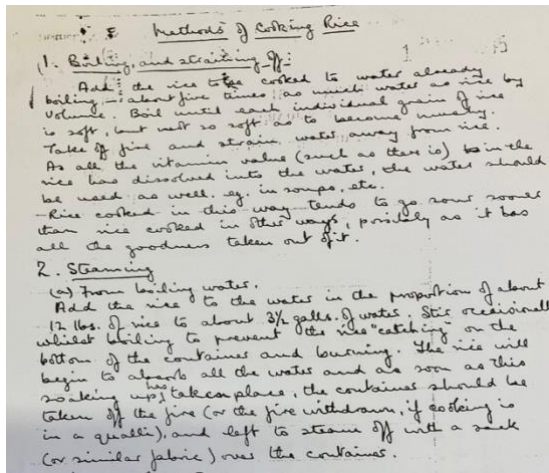 Methods of Cooking Rice
1. Boiling, and straining off:
Add the rice to be cooked to water already
boiling – about five times as much water as rice by
volume. Boil until each individual grain of rice
is soft, but not so soft as to become mushy.
Take off fire and strain water away from rice.
As all the vitamin value (such as there is) in the
rice has dissolved into the water, the water should
be used as well. eg. in soups, etc.
– Rice cooked in this way tends to go sour sooner
than rice cooked in other ways, possibly as it has
all the goodness taken out of it.
2. Steaming
(a) From boiling water.
Add the rice to the water in the proportion of about
12 lbs. of rice to about 3½ galls. of water. Stir occasionall
whilst boiling to prevent the rice "catching" on the
bottom of the container and burning. The rice will
begin to absorb all the water and as soon as this
soaking up has taken place, the container should be
taken off the fire (or the fire withdrawn, if cooking is
in a qualli), and left to steam off with a sack
(or similar fabric) over the container.